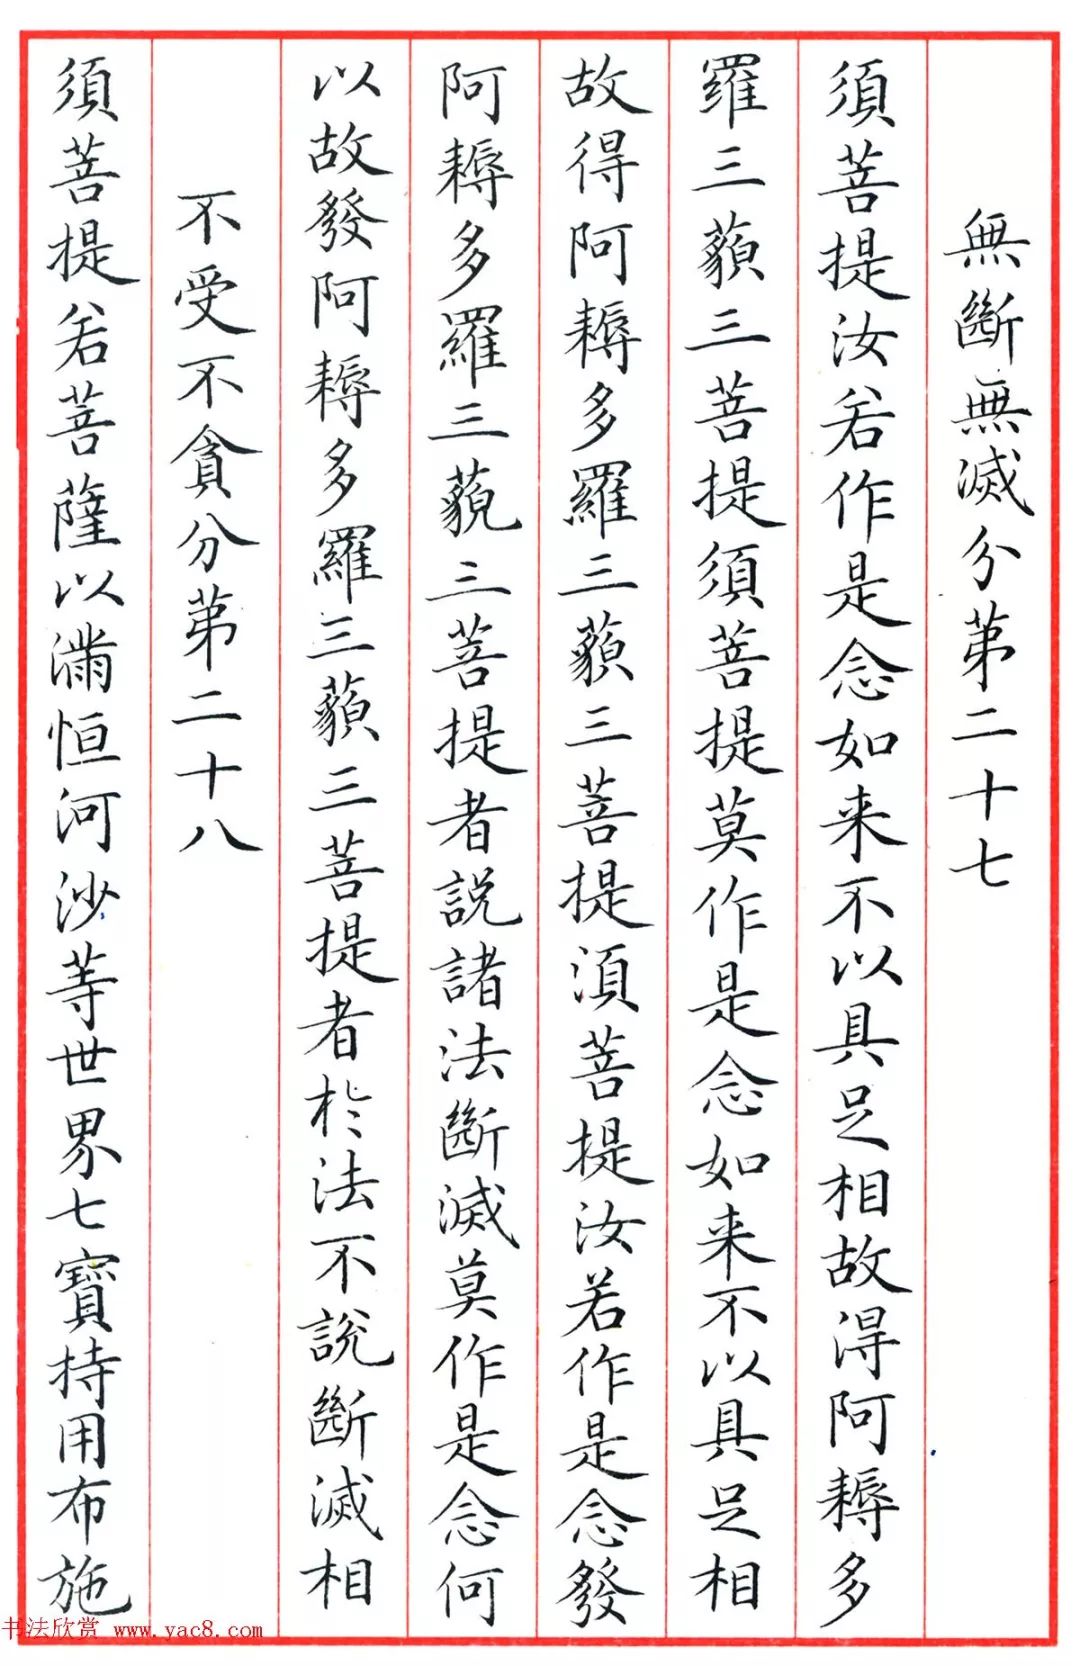 無斷無滅分第二十七
須菩提汝若作是念如来不以具足相故得阿耨多
羅三藐三菩提須菩提莫作是念如来不以具足相
故得阿耨多羅三藐三菩提須菩提汝若作是念發
阿耨多羅三藐三菩提者説諸法斷滅莫作是念何
以故發阿耨多羅三藐三菩提者於法不説斷滅相
不受不貪分第二十八
須菩提若菩薩以滿恒河沙等世界七寶持用布施
书法欣赏 www.yac8.com